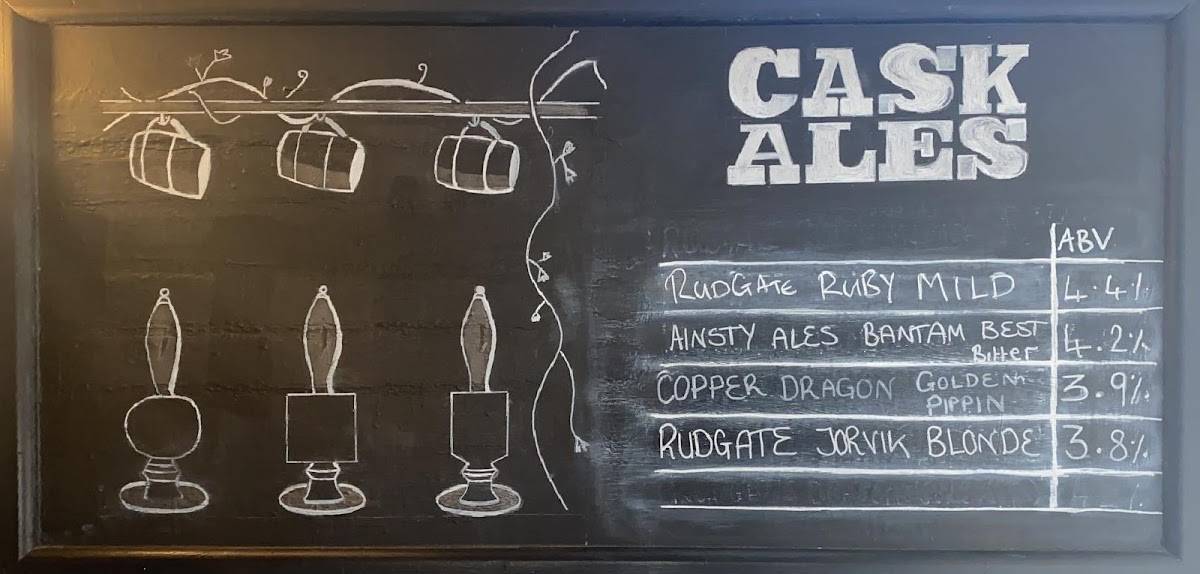 CASK
ALES
ABV
RUDGATE RUBY MILD 4.4%
AINSTY ALES BANTAM BEST
Bitter 4.2%
COPPER DRAGON GOLDEN
PIPPIN 3.9%
RUDGATE JORVIK BLONDE 3.8%